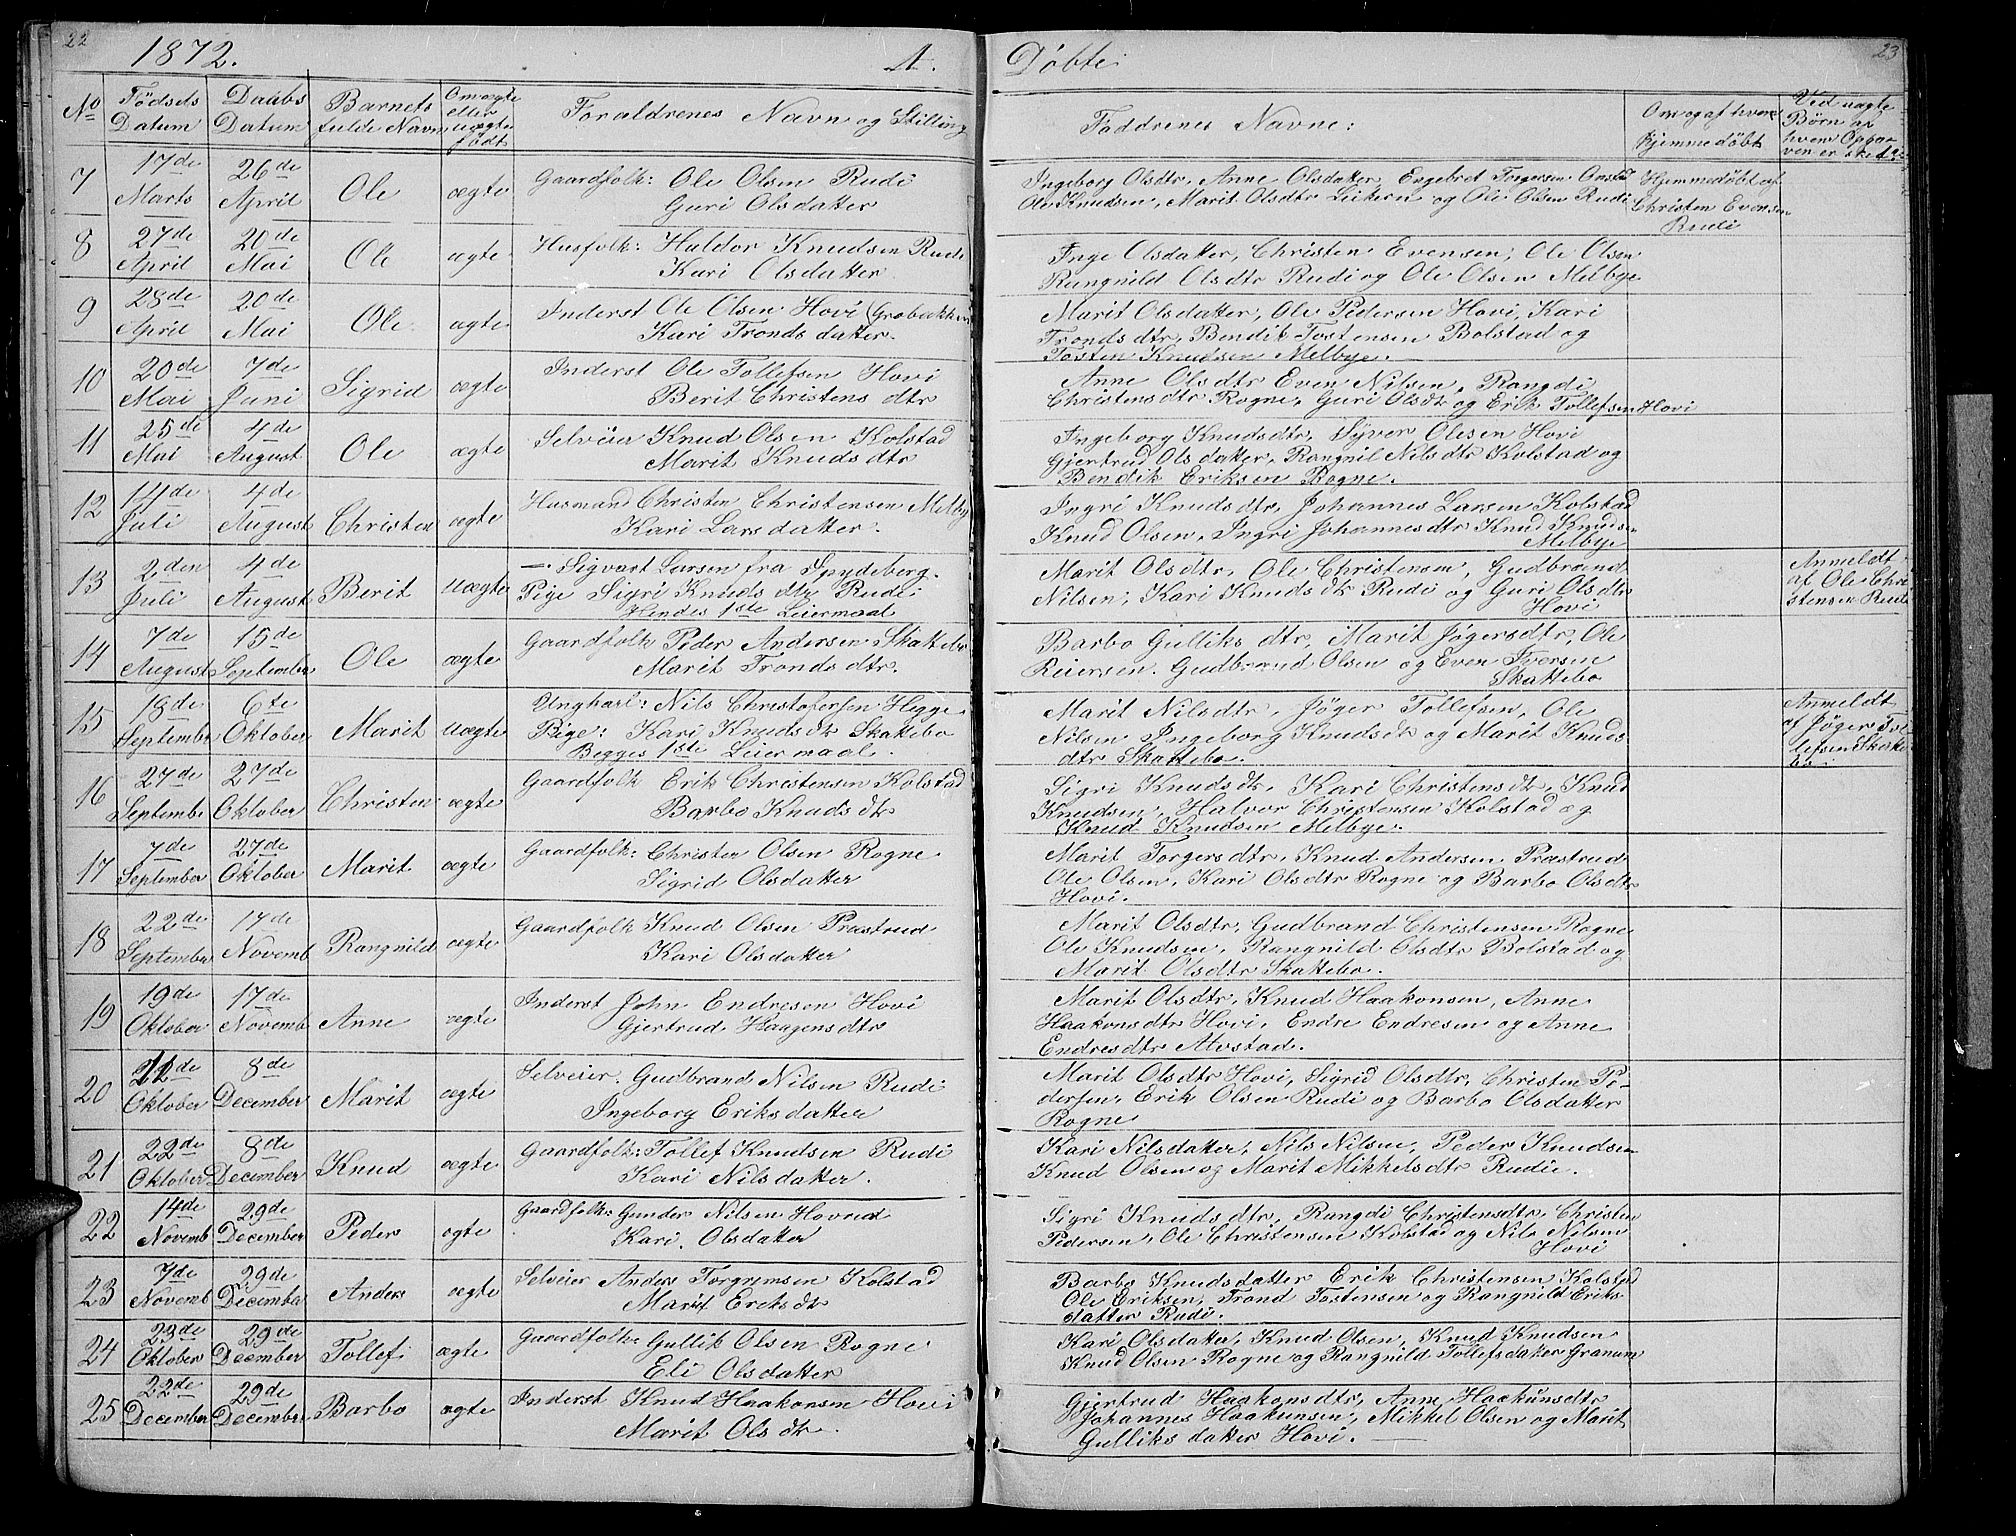 22
1872.
A.
Døbte.
23
No
Fødsels Datum
Daabs Datum
Barnets fulde Navn
Om ægte eller uægte født
Forældrenes Navn og Stilling
Faddrenes Navne:
Om og af hvem hjemmedøbt
Ved uægte Børn af hvem Opgaven er sked
7
17de Marts
26de April
Ole
ægte
Gaardfolk: Ole Olsen Rudi
Guri Olsdatter
Ingeborg Olsdtr, Anne Olsdatter Engebret Torgersen
Ole Knudsen, Marit Olsdtr Leikern og Ole Olsen Rudi
Hjemmedøbt af
Christen Evensen
Rudi
8
27de April
20de Mai
Ole
ægte
Husfolk: Haldor Knudsen Rudi
Kari Olsdatter
Inge Olsdatter, Christen Evensen, Ole Olsen
Rangnild Olsdtr Rudi og Ole Olsen Melbye
9
28de April
20de Mai
Ole
ægte
Inderst Ole Olsen Hovi
Kari Tronds datter.
Marit Olsdatter, Ole Pedersen Hovi, Kari
Tronds dtr, Bendik Tostensen Bolstad og
Tosten Knudsen Melbye.
10
20de Mai
7de Juni
Sigrid
ægte
Inderst Ole Tollefsen Hovi
Berit Christens dtr
Anne Olsdtr Even Nilsen, Rangdi
Christensdtr Rogne, Guri Olsdtr og Erik Tollefsen Hovi
11
25de Mai
4de August
Ole
ægte
Selveier Knud Olsen Kolstad
Marit Knuds dtr
Ingeborg Knudsdtr, Syver Olesen Hovi
Gjertrud Olsdatter, Rangnil Nilsdtr Kolstad og
Bendik Eriksen Rogne.
12
14de Juli
4de August
Christen
ægte
Husmand Christen Christensen Melby
Kari Larsdatter.
Ingri Knudsdtr, Johannes Larsen Kolstad
Knud Olsen, Ingri Johannesdtr Knud Knudsen
Melbye
13
2den Juli
4de August
Berit
uægte
— Sigvart Larsen fra Spydeberg.
Pige Sigri Knuds dtr Rudi
Hendes 1ste Leiermaal
Marit Olsdtr, Ole Christensen, Gudbrand
Nilsen, Kari Knuds dtr Rudi og Guri Olsdtr
Hovi
Anmeldt
af Ole Chri
stensen Rudi
14
7de August
15de September
Ole
ægte
Gaardfolk Peder Andersen Skattebo
Marit Tronds dtr.
Barbo Gulliks dtr, Marit Jøgersdtr, Ole
Reiersen, Gudbrand Olsen og Even Iversen
Skattebo
15
18de September
6te Oktober
Marit
uægte
Ungkarl: Nils Christofersen Hegge
Pige: Kari Knudsdtr Skattebo
Begges 1ste Leiermaal.
Marit Nilsdtr, Jøger Tollefsen, Ole
Nilsen Ingeborg Knudsdtr og Marit Knuds
dtr Skattebo.
Anmeldt
af Jøger Tol
lefsen Skatte
bo.
16
27de September
27de Oktober
Christen
ægte
Gaardfolk Erik Christensen Kolstad
Barbo Knuds dtr
Sigri Knudsdtr, Kari Christensdtr, Knud
Knudsen, Halvor Christensen Kolstad og
Knud Knudsen Melbye.
17
7de September
27de Oktober
Marit
ægte
Gaardfolk: Christen Olsen Rogne
Sigrid Olsdatter
Marit Torgersdtr, Knud Andersen Præstrud
Ole Olsen, Kari Olsdtr Rogne og Barbo Olsdtr
Hovi.
18
22de September
17de Novemb
Rangnild
ægte
Gaardfolk Knud Olsen Præstrud
Kari Olsdatter
Marit Olsdtr, Gudbrand Christensen Rogne
Ole Knudsen, Rangnild Olsdtr Bolstad og
Marit Olsdtr Skattebo.
19
19de Oktober
17de Novemb
Anne
ægte
Inderst John Endresen Hovi
Gjertrud Haagensdtr
Marit Olsdtr, Knud Haakonsen, Anne
Haakonsdtr Hovi, Endre Endresen og Anne
Endresdtr Alvstad.
20
de Oktober
8de December
Marit
ægte
Selveier. Gudbrand Nilsen Rudi
Ingeborg Eriksdatter
Marit Olsdtr Hovi, Sigrid Olsdtr, Christen Pe-
dersen, Erik Olsen Rudi og Barbo Olsdatter
Rogne
21
22de Oktober
8de December
Knud
ægte
Gaardfolk: Tollef Knudsen Rudi
Kari Nilsdatter.
Kari Nilsdatter, Nils Nilsen, Peder Knudsen
Knud Olsen og Marit Mikkelsdtr Rudie.
22
14de Novemb
29de December
Peder
ægte
Gaardfolk: Gunder Nilsen Hovrud
Kari. Olsdatter
Sigri Knuds dtr, Rangdi Christensdtr, Christen
Pedersen, Ole Christensen Kolstad og Nils Nilsen
Hovi
23
7de Novemb
29de December
Anders
ægte
Selveier Anders Torgrimsen Kolstad
Marit Eriksdtr
Barbo Knudsdatter Erik Christensen Kolstad
Ole Eriksen, Trond Tostensen og Rangnild Eriks-
datter Rudi.
24
23de Oktober
29de December
Tollef
ægte
Gaardfolk: Gullik Olsen Rogne
Eli Olsdatter
Kari Olsdatter, Knud Olsen, Knud Knudsen
Knud Olsen Rogne og Rangnild Tollefsdatter Granum
25
22de December
29de December
Barbo
ægte
Inderst Knud Haakonsen Hovi
Marit Ols dtr.
Gjertrud Haakonsdtr, Anne Haakunsdtr
Johannes Haakunsen, Mikkel Olsen og Marit
Gulliks datter Hovi. —